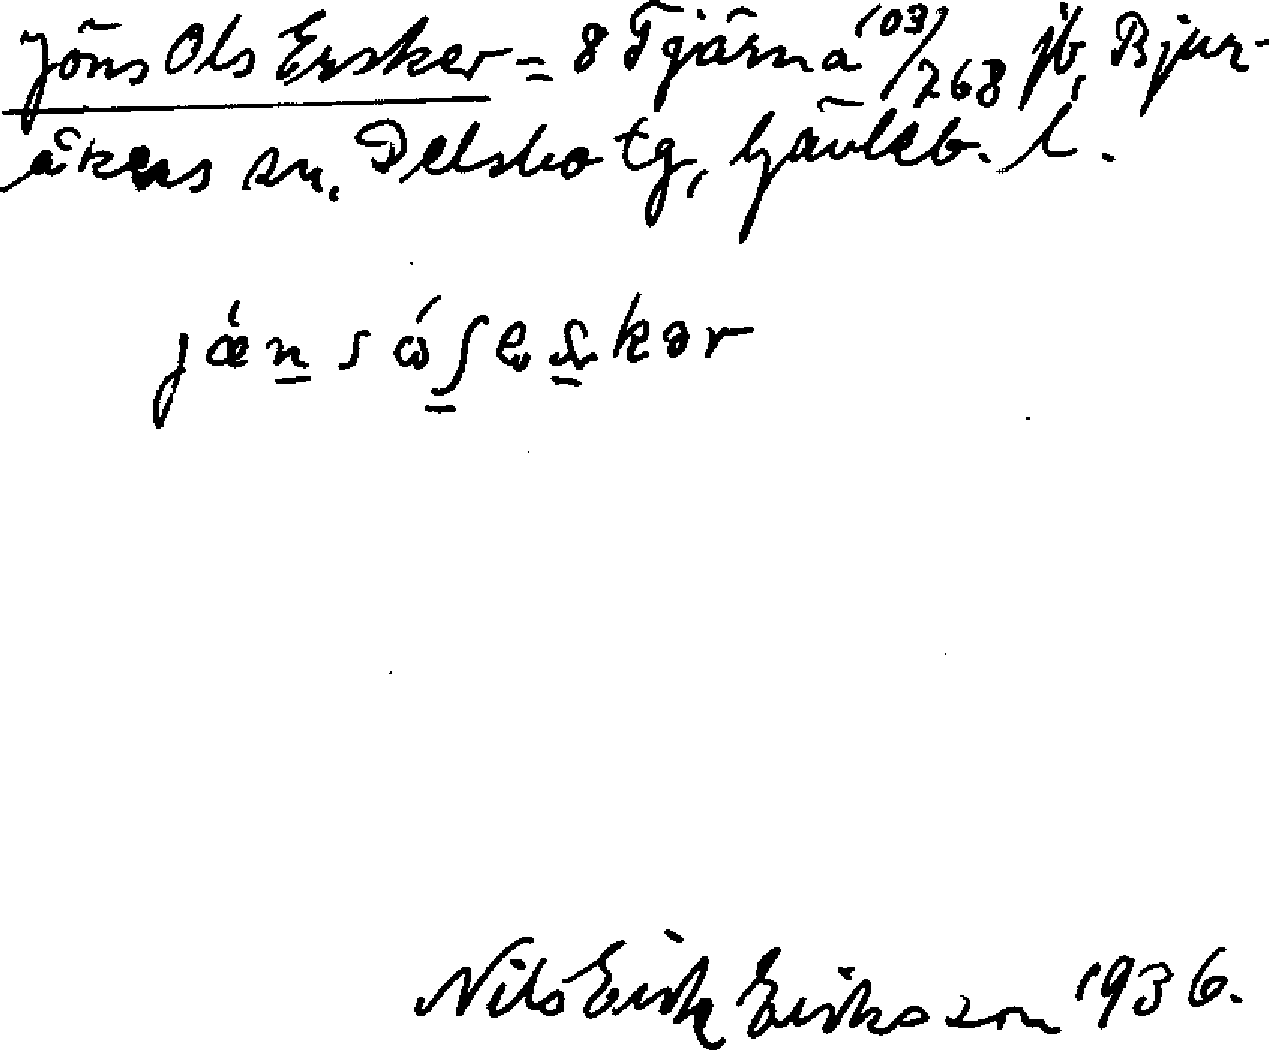 Jöns Ols Ersker = 8 Tjärna (03)/268 jb, Bjur-
åkers sn. Delsbo tg, Gävleb. l.
Nils Erik Eriksson 1936.